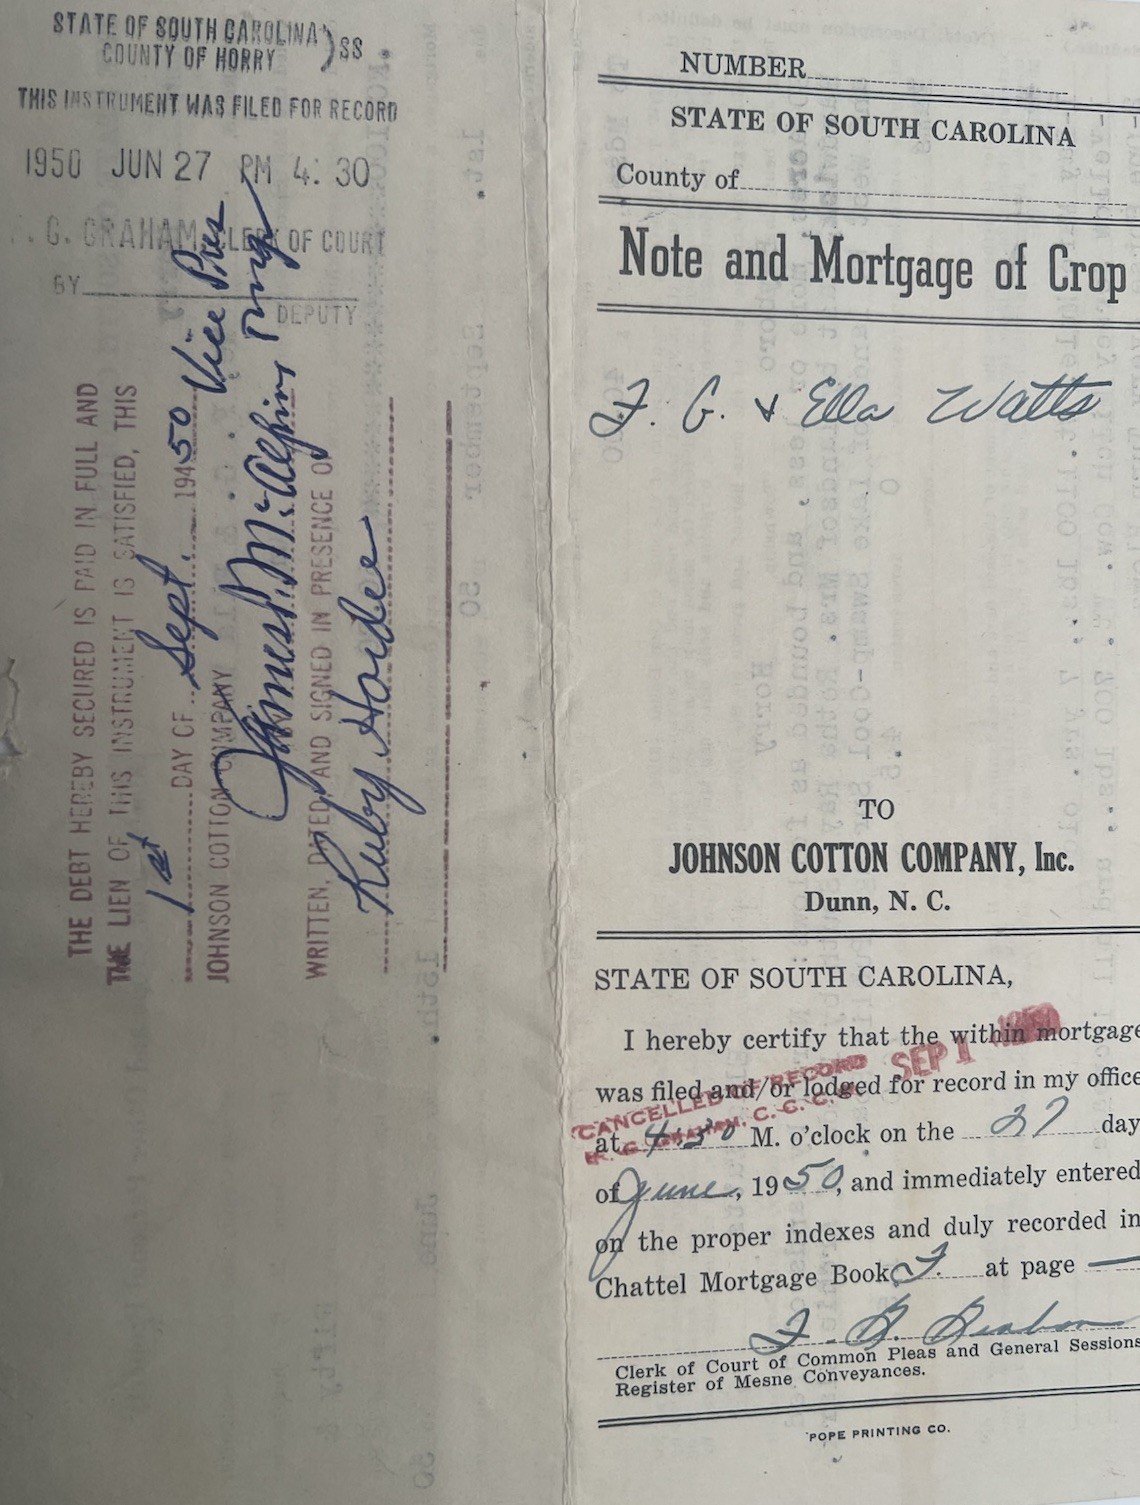 STATE OF SOUTH CAROLINA
COUNTY OF HORRY
) SS
THIS INSTRUMENT WAS FILED FOR RECORD
1950 JUN 27 PM 4:30
. G. GRAHAM, CLERK OF COURT
BY
DEPUTY
THE DEBT HEREBY SECURED IS PAID IN FULL AND
THE LIEN OF THIS INSTRUMENT IS SATISFIED, THIS
1st DAY OF Sept. 1950
JOHNSON COTTON COMPANY
James McAlpin Vice Pres
WRITTEN, DATED, AND SIGNED IN PRESENCE OF
Ruby
NUMBER
STATE OF SOUTH CAROLINA
County of
Note and Mortgage of Crop
F. G. & Ella Watts
TO
JOHNSON COTTON COMPANY, Inc.
Dunn, N. C.
STATE OF SOUTH CAROLINA,
I hereby certify that the within mortgage
SEP 1 1950
was filed and/or lodged for record in my office
CANCELLED OF RECORD
G. GRAHAM, C. C. C.
at 4:30 M. o'clock on the 27 day
of June, 1950, and immediately entered
on the proper indexes and duly recorded in
Chattel Mortgage Book F. at page —
F. G. Graham
Clerk of Court of Common Pleas and General Sessions
Register of Mesne Conveyances.
POPE PRINTING CO.